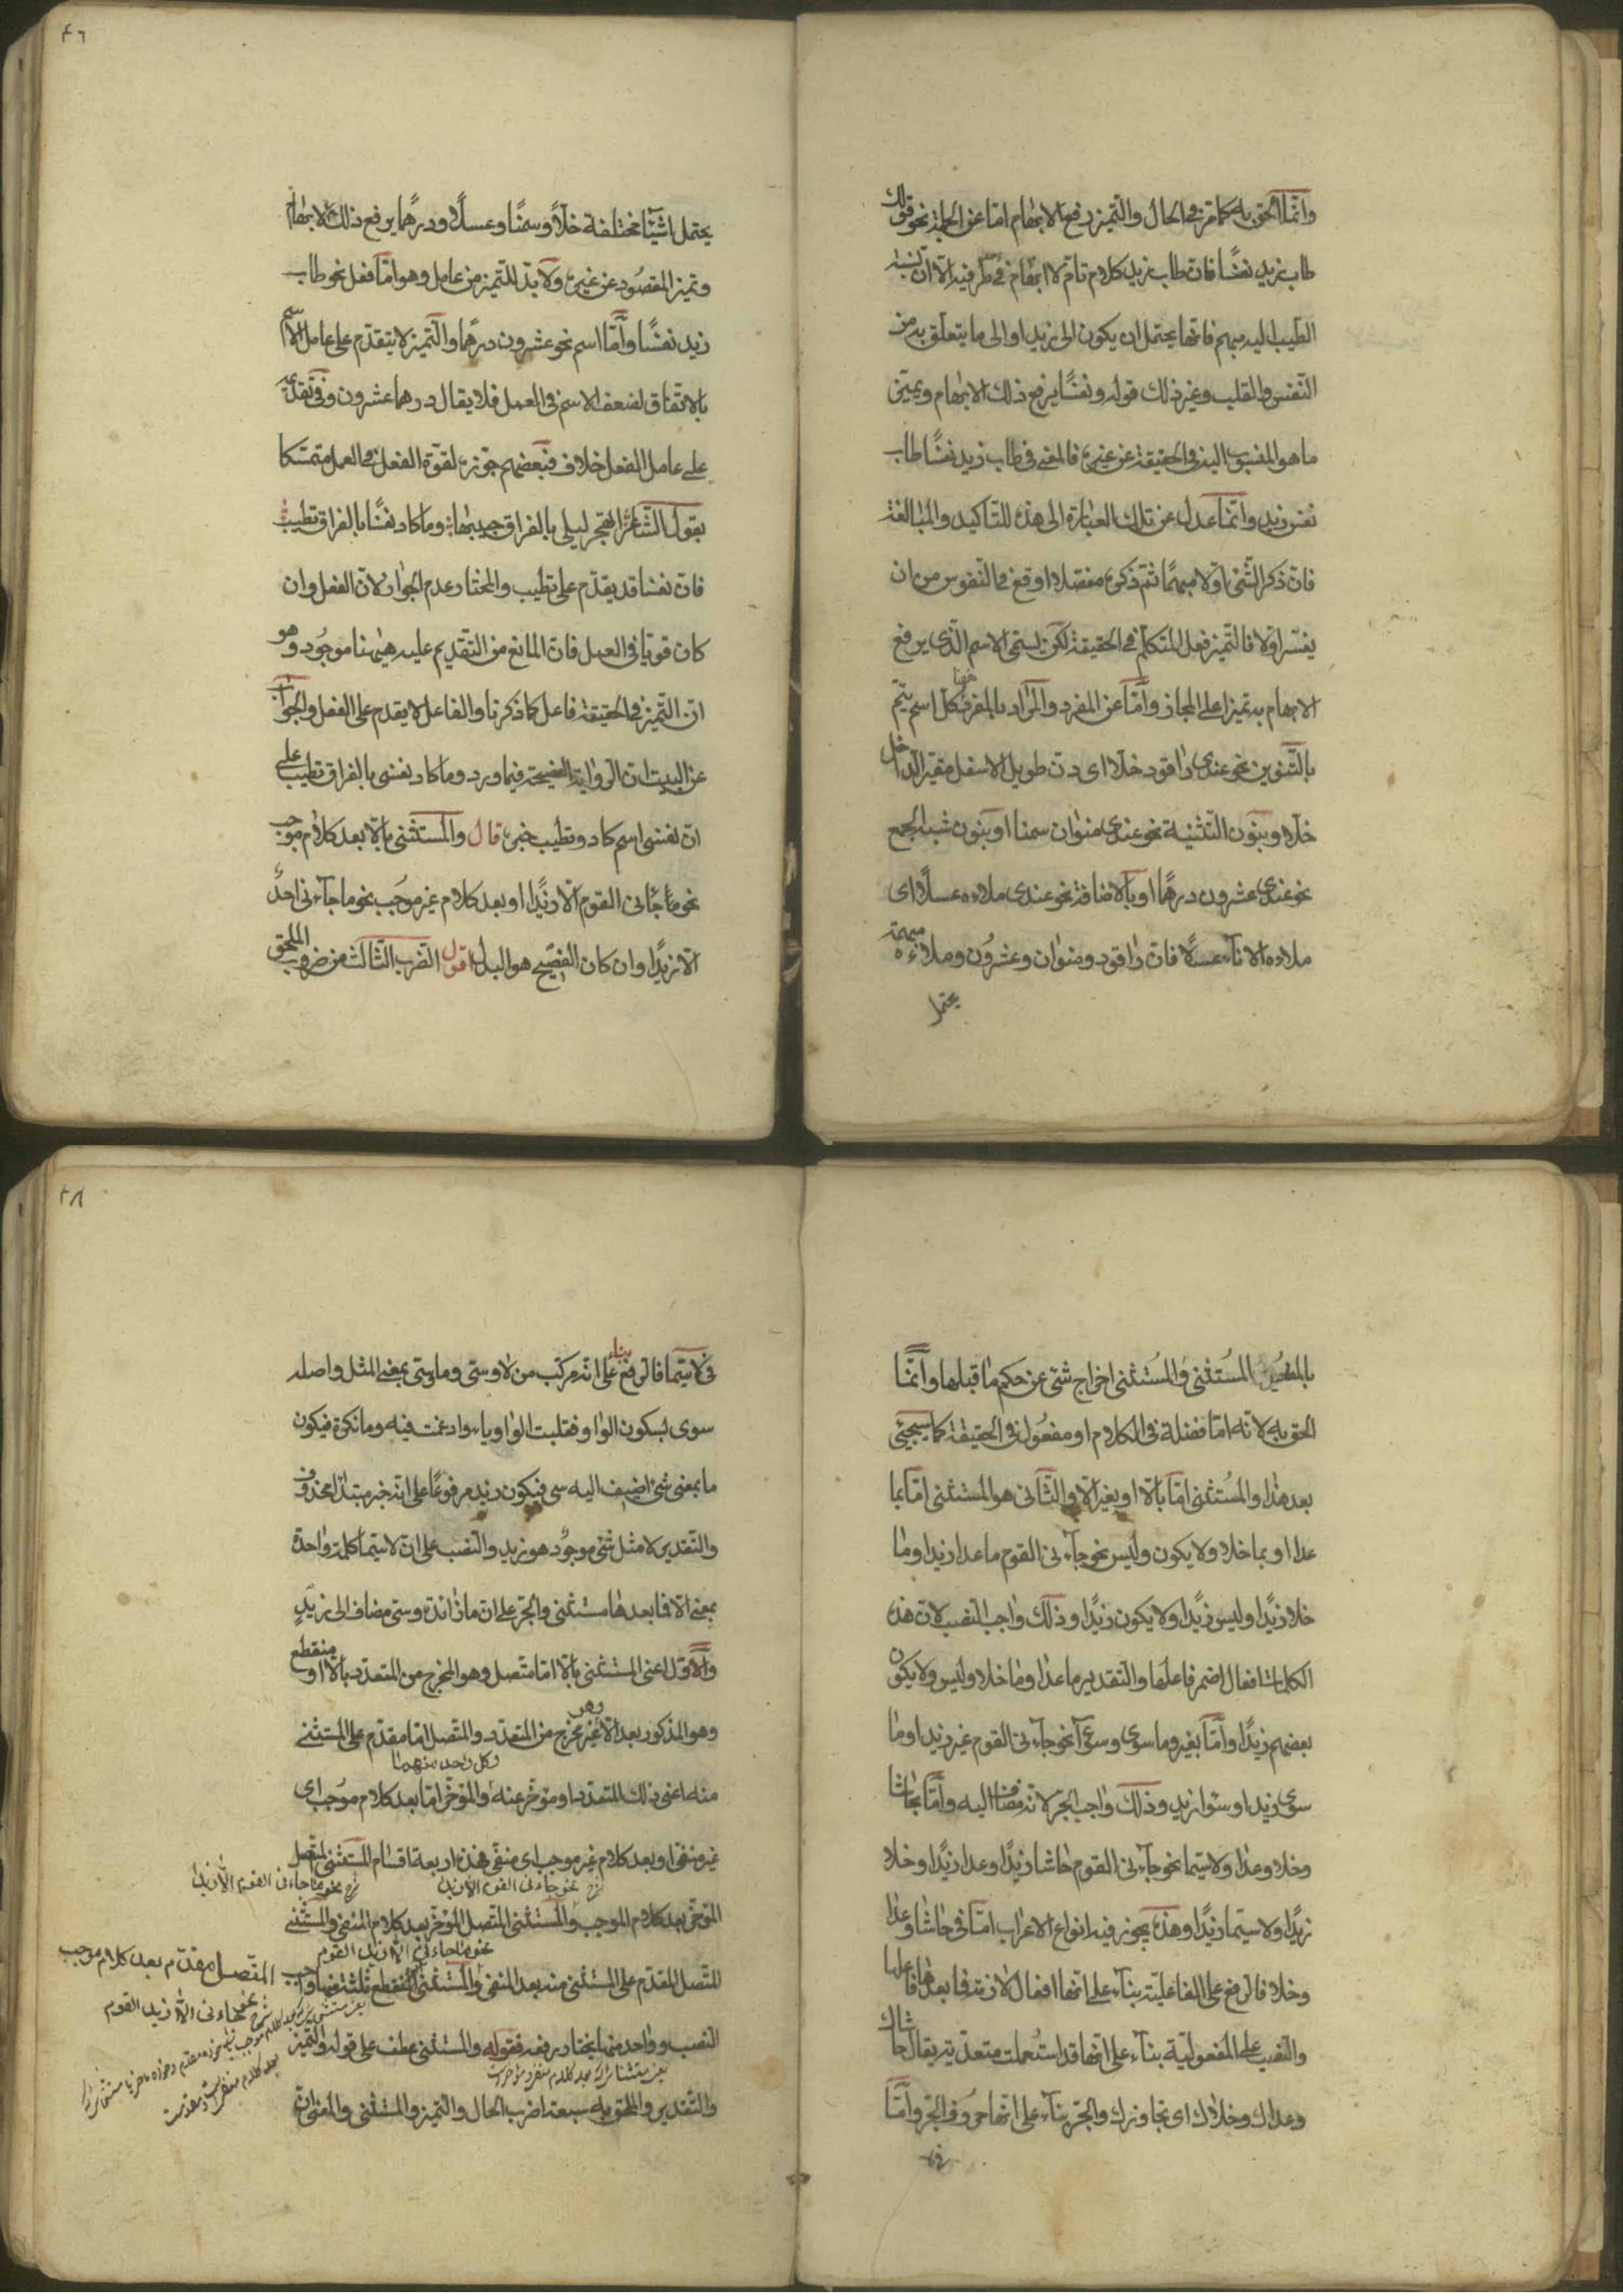 وانما الحق به كما مر فى الحال والتميز رفع الابهام اما عن الجملة نحو قولك
طاب زيد نفسًا فان طاب زيد كلام تام لا ابهام فى طرفيه الا ان نسبة
الطيب اليه مبهم فانها يحتمل ان يكون الى زيد او الى ما يتعلق به من
النفس والقلب وغير ذلك قوله ونفسًا يرفع ذلك الابهام ويميّز
ما هو المنسوب اليه فى الحقيقة عن غيره فالمعنى فى طاب زيد نفسًا طاب
نفس زيد وانما عدل عن تلك العبارة الى هذه للتاكيد والمبالغة
فان ذكر الشئ اولا مبهمًا ثم ذكره مفصلا اوقع فى النفوس من ان
يفسر اولا فالتميز فعل المتكلم فى الحقيقة لكن يسمى الاسم الذى يرفع
الابهام به تميزا على المجاز واما عن المفرد والمراد بالمفرد هنا كل اسم يتم
بالتنوين نحو عندى راقود خلا اى دن طويل الاسفل مقير الداخل
خلا وبنون التثنية نحو عندى منوان سمنا او بنون شبه الجمع
نحو عندى عشرون درهما او بالاضافة نحو عندى ملاءه عسلًا اى
ملاءه الاناء عسلًا فان راقود ومنوان وعشرون وملاءه مبهمة
يحتمل
٤٦
يحتمل اشياء مختلفة خلًا وسمنًا وعسلًا ودرهمًا يرفع ذلك الابهام
وتميز المقصود عن غيره ولا بد للتميز من عامل وهو اما فعل نحو طاب
زيد نفسًا واما اسم نحو عشرون درهما والتميز لا يتقدم على عامل الاسم
بالاتفاق لضعف الاسم فى العمل فلا يقال درهما عشرون وفى تقدمه
على عامل الفعل خلاف فبعضهم جوزه لقوة الفعل فى العمل متمسكا
بقول الشاعر اتهجر ليلى بالفراق حبيبها وما كاد نفسًا بالفراق تطيب
فان نفسا قد يقدم على تطيب والمختار عدم الجواز لان الفعل وان
كان قويا فى العمل فان المانع من التقديم عليه هيهنا موجود وهو
ان التميز فى الحقيقة فاعل كما ذكرنا والفاعل لا يقدم على الفعل والجواب
عن البيت ان الرواية الفصيحة فيما ورد وما كاد نفسى بالفراق تطيب على
ان نفسى اسم كاد وتطيب خبره قال والمستثنى بالا بعد كلام موجب
نحو ما جانى القوم الا زيدًا او بعد كلام غير موجب نحو ما جآءنى احدٌ
الا زيدًا وان كان الفصيح هو البدل اقول الضرب الثالث من ضروب الملحق
بالمفعول المستثنى والمستثنى اخراج شئ عن حكم ما قبلها وانما
الحق به لانه اما فضلة فى الكلام او مفعول فى الحقيقة كما سيجئ
بعد هذا والمستثنى اما بالا او بغير الا والثانى هو المستثنى اما بما
عدا او بما خلا ولا يكون وليس نحو جآءنى القوم ما عدا زيدا وما
خلا زيدًا وليس زيدًا ولا يكون زيدًا وذلك واجب النصب لان هذه
الكلمات افعال اضمر فاعلها والتقدير ما عدا وما خلا وليس ولا يكون
بعضهم زيدًا واما بغير وما سوى وسوآء نحو جآءنى القوم غير زيد او ما
سوى زيد او سوا زيد وذلك واجب الجر لانه مضاف اليه واما بحاشا
وخلا وعدا ولا سيما نحو جآءنى القوم حاشا زيدًا وعدا زيدًا وخلا
زيدًا ولا سيما زيدًا وهذه يجوز فيه انواع الاعراب اما فى حاشا وعدا
وخلا فالرفع على الفاعلية بناء على انها افعال لازمة فما بعدها فاعلها
والنصب على المفعولية بناء على انها قد استعملت متعدية يقال حاشاك
وعداك وخلاك اى تجاوزك والجر بناء على انها حروف الجر واما
فى لا
٤٨
فى لا سيما فالرفع بناء على انه مركب من لا وسى وما وسى بمعنى المثل واصله
سوى بسكون الواو فقلبت الواو ياء وادغمت فيه وما نكرة فيكون
ما بمعنى شئ اضيف اليه سى فيكون زيد مرفوعًا على انه خبر مبتدا محذوف
والتقدير لا مثل شئ موجود هو زيد والنصب على ان لا سيما كلمة واحدة
بمعنى الا فما بعدها مستثنى والجر على ان ما زائدة وسى مضاف الى زيدٍ
والاول اعنى المستثنى بالا اما متصل وهو المخرج من المتعدد بالا او منقطع
وهو المذكور بعد الا غير مخرج من المتعدد والمتصل اما مقدم على المستثنى
وكل واحد منهما
منه اعنى ذلك المتعدد او مؤخر عنه والمؤخر اما بعد كلام موجب اى
غير منفى او بعد كلام غير موجب اى منفى هذه اربعة اقسام المستثنى المتصل
نحو جاءنى القوم الا زيدا
نحو ما جاءنى القوم الا زيدا
المؤخر بعد كلام الموجب والمستثنى المتصل المؤخر بعد كلام المنفى والمستثنى
نحو ما جاءنى الا زيدا القوم
المتصل المقدم على المستثنى منه بعد المنفى والمستثنى المنقطع ثلثة منها واجب
المتصل مقدم بعد كلام موجب
نحو جاءنى الا زيدا القوم
النصب وواحد منها يختار رفعه فقوله والمستثنى عطف على قوله والتميز
والتقدير والملحق به سبعة اضرب الحال والتميز والمستثنى والمعنى ان